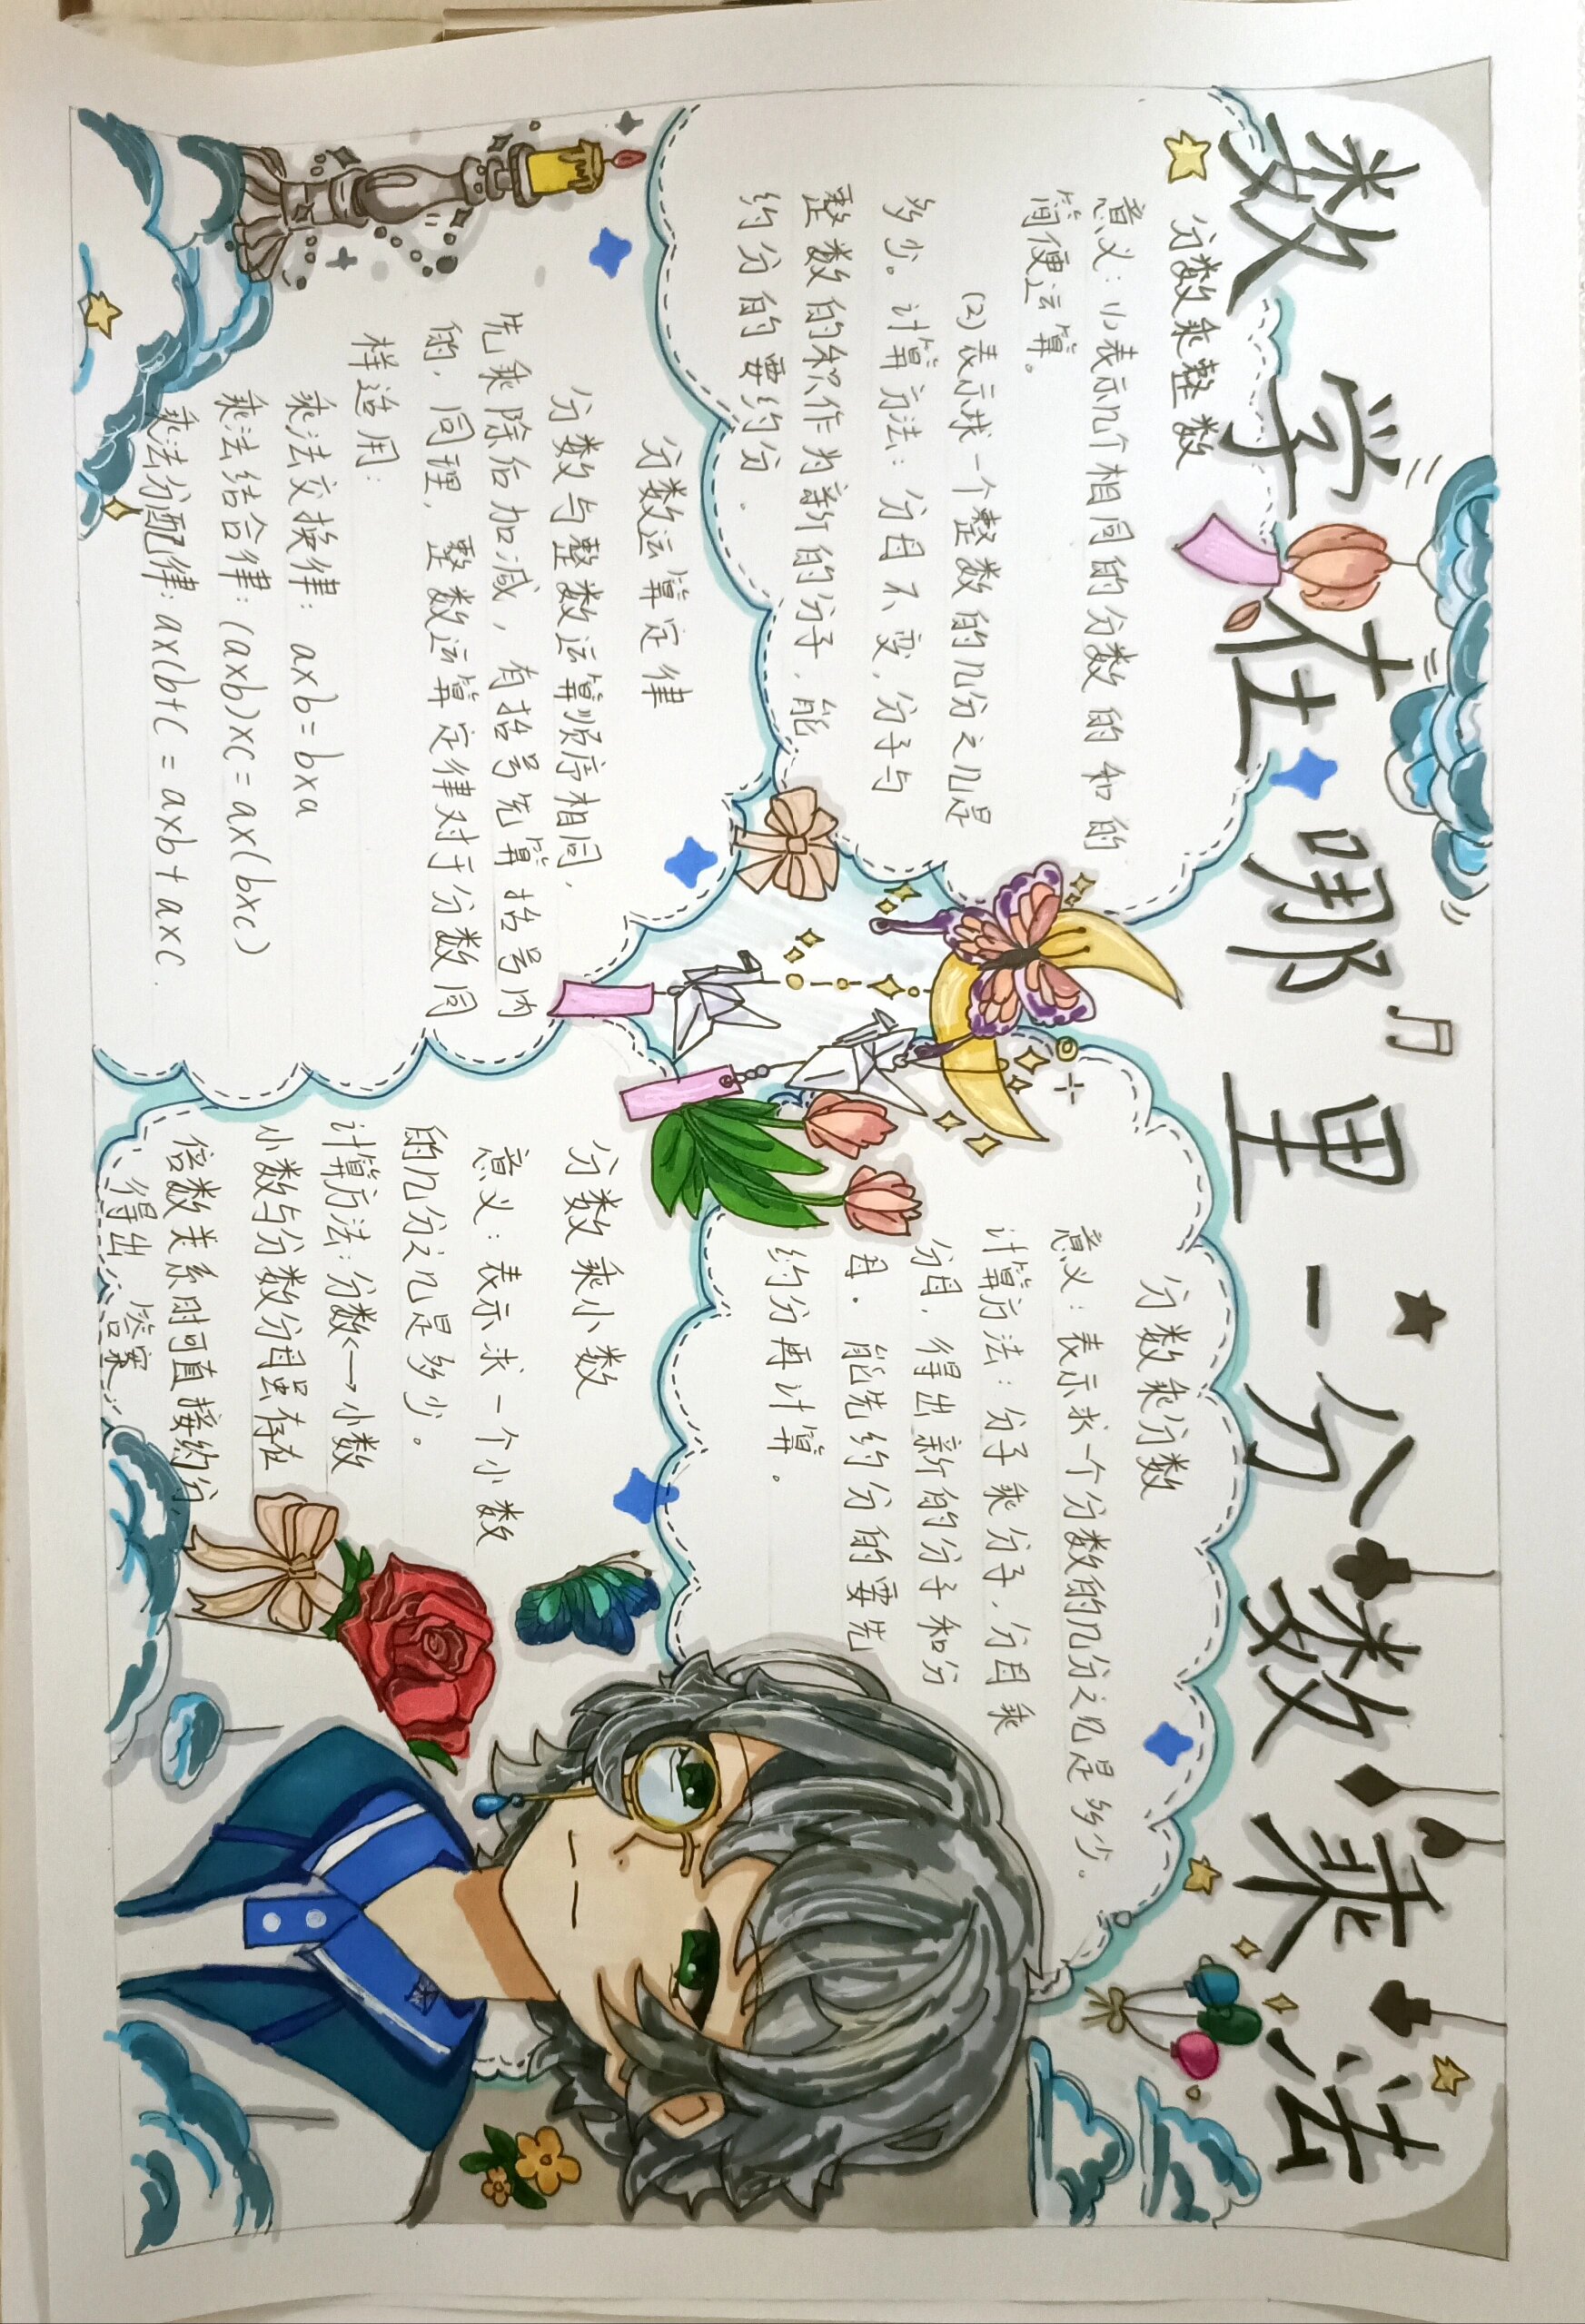 数学在哪里—分数乘法
分数乘整数
意义:(1)表示几个相同的分数的和的
简便运算。
(2)表示球一个整数的几份之几是
多少。计算方法:分母不变,分子与
整数的积作为新的分子,能
约分的要约分.
分数运算定律
分数与整数运算顺序相同,
先乘除后加减,有括号先算括号内
的,同理,整数运算定律对于分数同
样适用:
乘法交换律: a×b=b×a
乘法结合律:(a×b)×c=a×(b×c)
乘法分配律:a×(b+c = a×b+a×c.
分数乘分数
意义:表示求一个分数的几分之几是多少。
计算方法:分子乘分子,分母乘
分母,得出新的分子和分
母.能先约分的要先
约分再计算。
分数乘小数
意义:表示求一个小数
的几分之几是多少。
计算方法:分数<—→小数
小数与分数分母虽存在
倍数关系时可直接约分
得出 答案